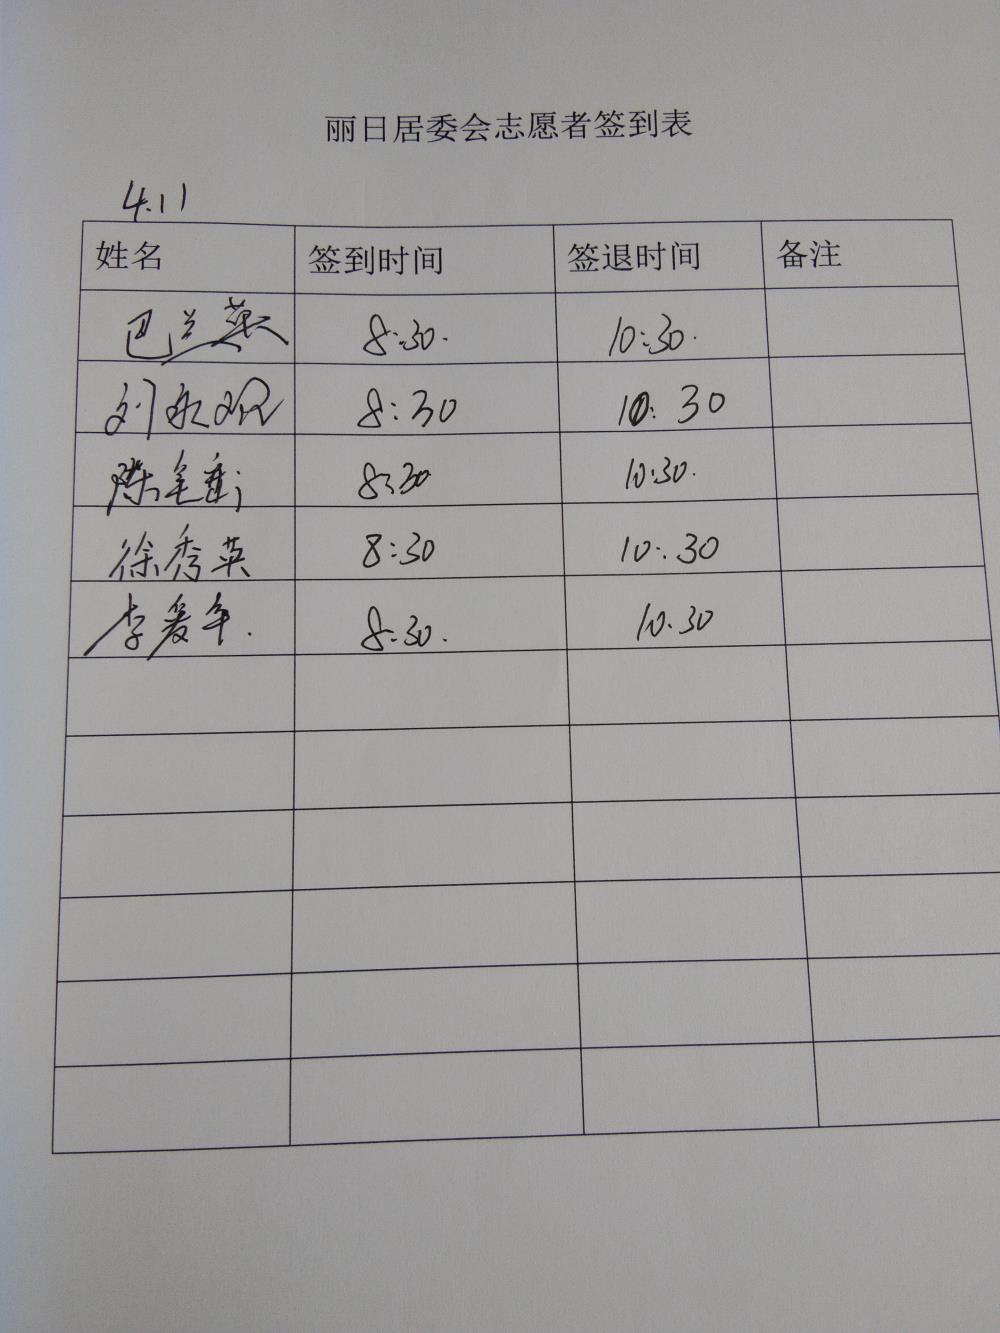 丽日居委会志愿者签到表
4.11
姓名 签到时间 签退时间 备注
巴兰燕 8:30. 10:30.
刘 8:30 10:30
陈 8:30 10:30.
徐秀英 8:30 10:30
李爱年. 8:30. 10.30